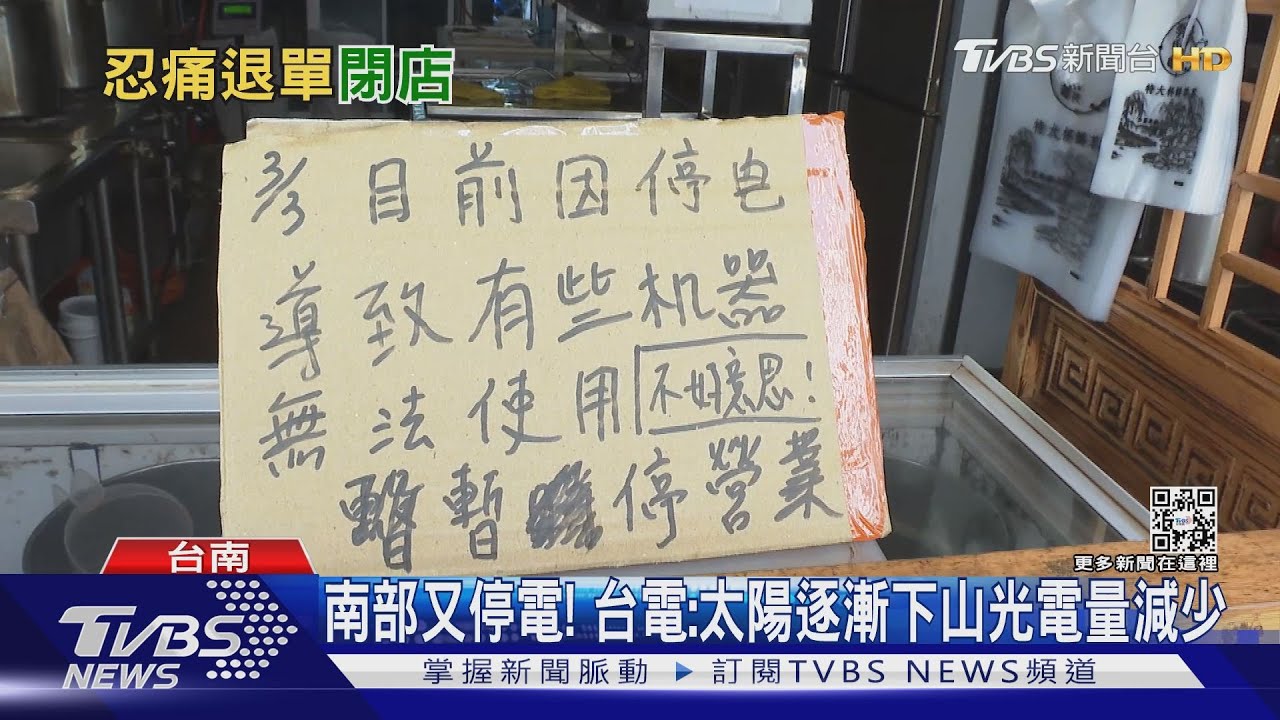 忍痛退單閉店
TVBS新聞台 HD
3/3 目前因停电
導致有些机器
無法使用 不好意思!
暫 停營業
更多新聞在這裡
台南
南部又停電! 台電:太陽逐漸下山光電量減少
TVBS
NEWS
掌握新聞脈動 ▶ 訂閱TVBS NEWS頻道